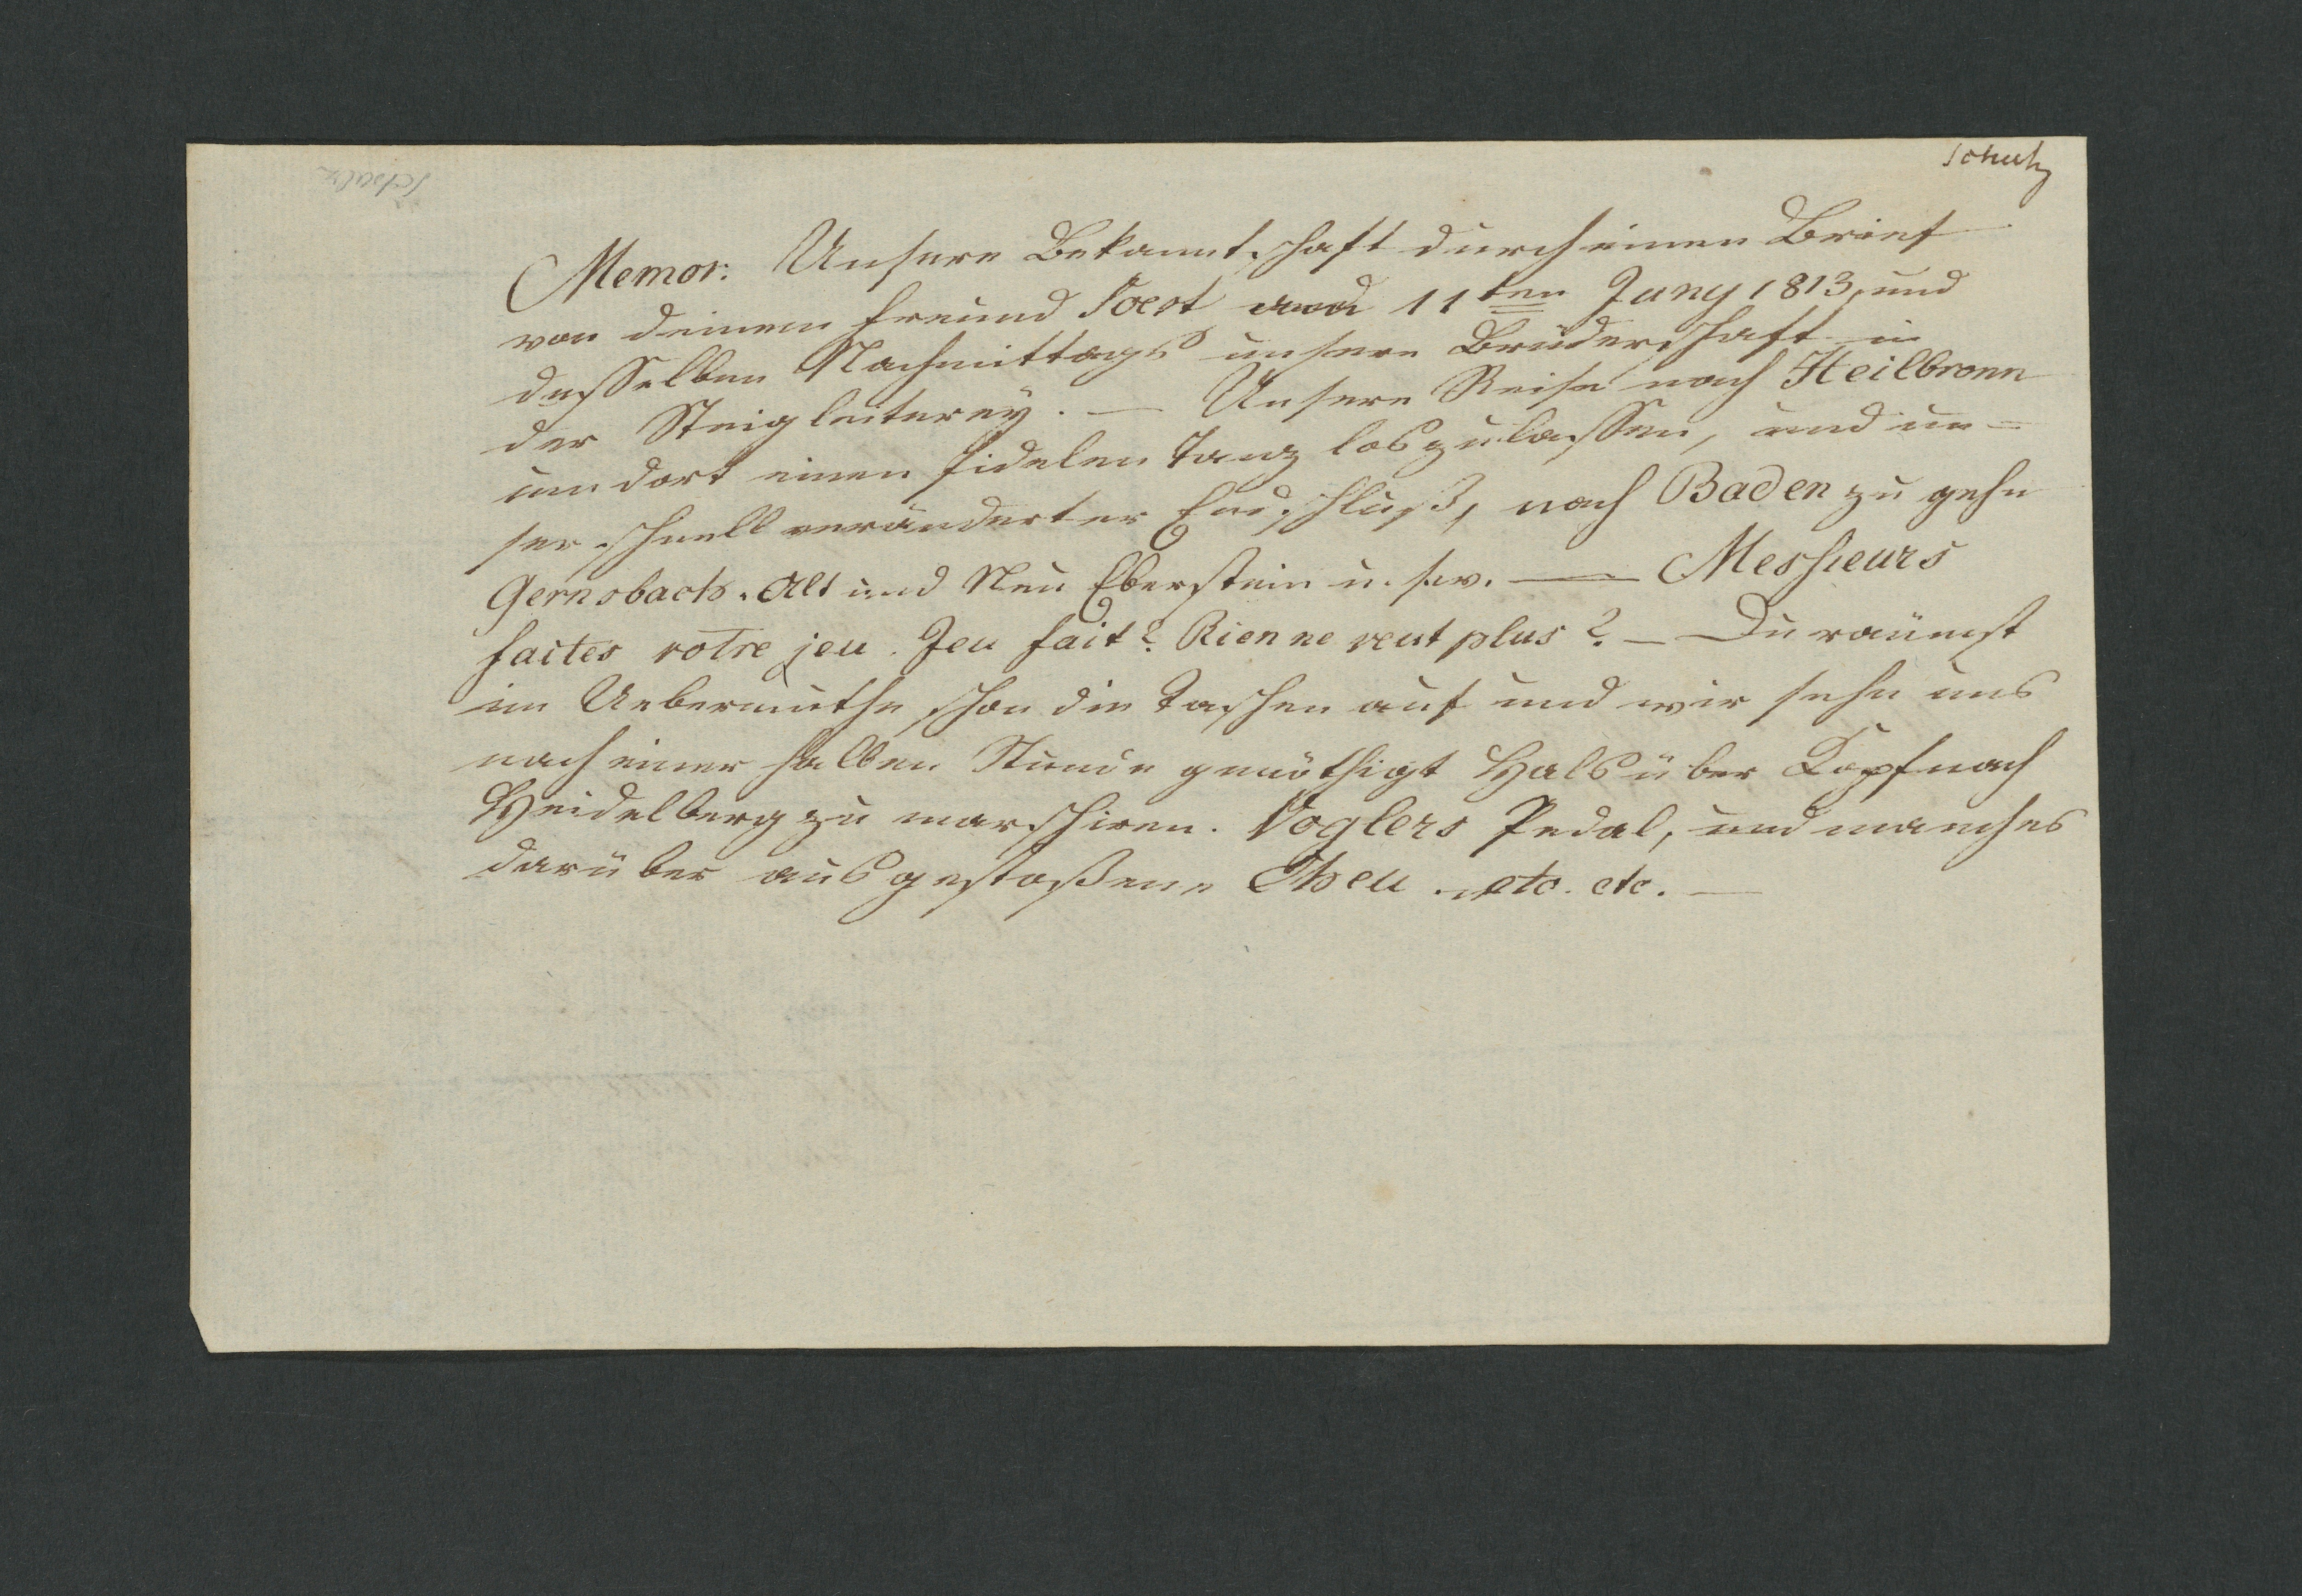 Schutz
Memor: Unsere Bekanntschaft durch einen Brief
von deinem Freund Poest 11ten Juny 1813, und
desselben Nachmittags unsere Brüderschaft in
der Steigleiterey. — Unsere Reise nach Heilbronn
um dort einen fidelen Tanz loszulassen, und un-
ser schnell veränderter Endschluß, nach Baden zu gehn
Gernsbach. Alt und Neu Eberstein u. s. w. — Messieurs
faites votre jeu. Jeu fait? Rien ne veut plus? — Du räumst
im Uebermuthe schon die Taschen auf und wir sehn uns
nach einer halben Stunde genöthigt Hals über Kopf nach
Heidelberg zu marschiren. Voglers Pedal, und manches
darüber ausgestoßene Theu. etc. etc. —